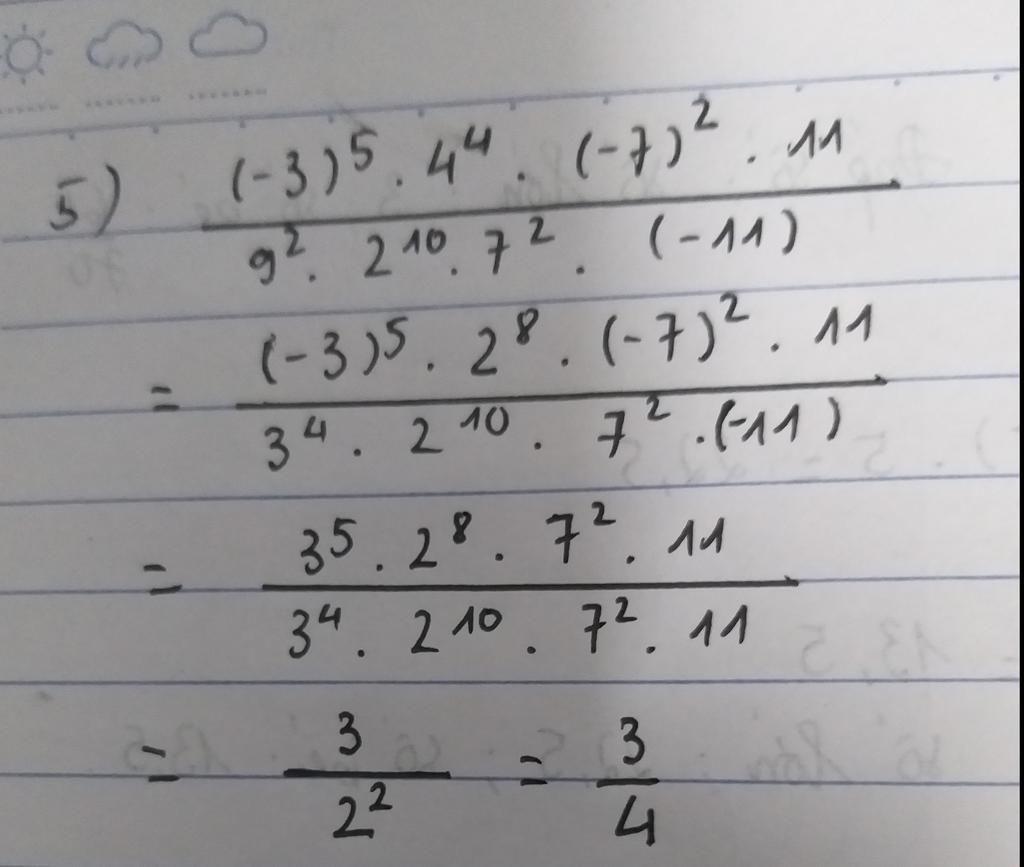 5) \frac{(-3)^5 . 4^4 . (-7)^2 . 11}{9^2 . 2^{10} . 7^2 . (-11)}
= \frac{(-3)^5 . 2^8 . (-7)^2 . 11}{3^4 . 2^{10} . 7^2 . (-11)}
= \frac{3^5 . 2^8 . 7^2 . 11}{3^4 . 2^{10} . 7^2 . 11}
= \frac{3}{2^2} = \frac{3}{4}